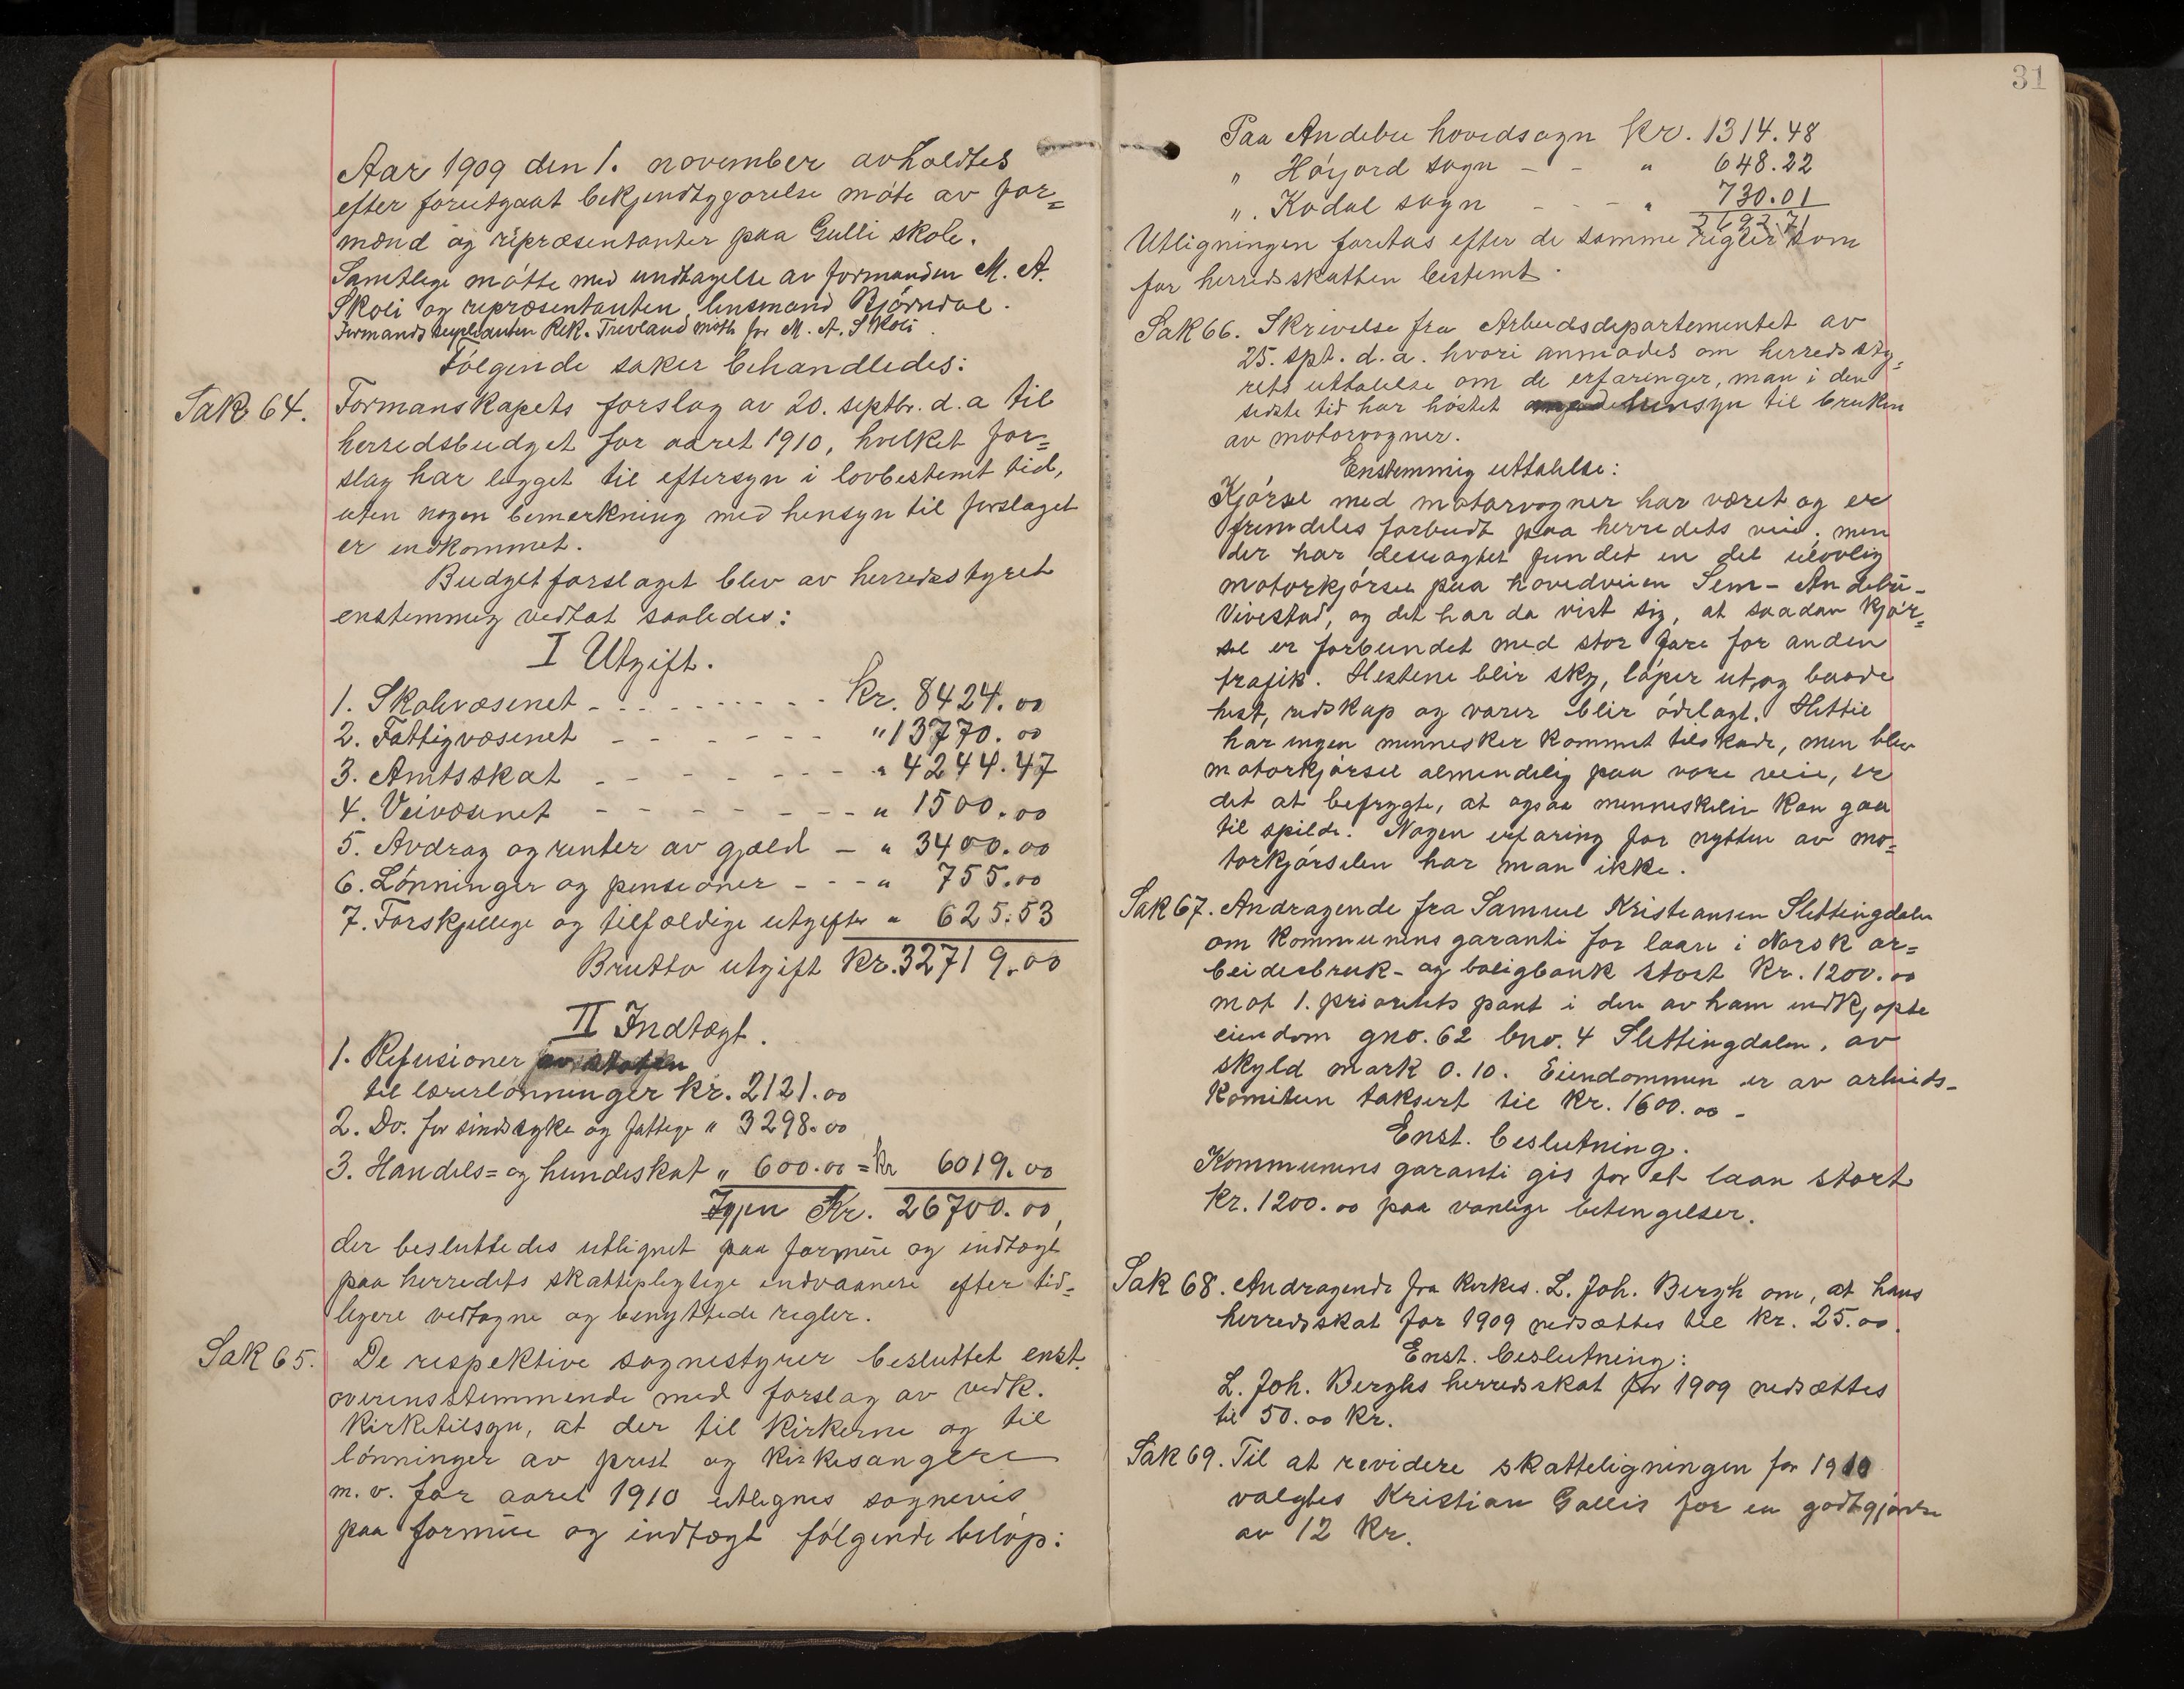 Aar 1909 den 1. november avholdtes
efter forutgaat bekjendtgjørelse møte av for=
mænd og repræsentanter paa Gulli skole.
Samtlige møtte med undtagelse av formanden M. A.
Skoli og repræsentanten lensmand Bjørndal.
Formandssupleanten R.K. Trevland møtte for M. A. Skoli.
Følgende saker behandledes:
Sak 64. Formanskapets forslag av 20. septbr. d.a til
herredsbudget for aaret 1910, hvilket for=
slag har ligget til eftersyn i lovbestemt tid,
uten nogen bemerkning med hensyn til forslaget
er indkommet.
Budgetforslaget blev av herredsstyret
enstemmig vedtat saaledes:
I Utgift.
1. Skolevæsenet - - - - - - - - - Kr. 8424.00
2. Fattigvæsenet - - - - - - " 13770.00
3. Amtsskat - - - - - - - " 4244.47
4. Veivæsenet - - - - - - - " 1500.00
5. Avdrag og renter av gjæld - " 3400.00
6. Lønninger og pensioner - - - " 755.00
7. Forskjellige og tilfældige utgifter " 625.53
Brutto utgift Kr. 32719.00
II Indtægt.
1. Refusioner av staten
til lærerlønninger Kr. 2121.00
2. Do. for sindssyke og fattige " 3298.00
3. Handels= og hundeskat " 600.00 = kr 6019.00
Igjen Kr. 26700.00,
der besluttedes utlignet paa formue og indtægt
paa herredets skattepligtige indvaanere efter tid=
ligere vedtagne og benyttede regler.
Sak 65. De respektive sognestyrer besluttet enst.
overensstemmende med forslag av vedk.
kirketilsyn, at der til kirkerne og til
lønninger av prest og kirkesangere
m.v. for aaret 1910 utlignes sognevis
paa formue og indtægt følgende beløp:
31
Paa Andebu hovedsogn Kr. 1314.48
" Høijord sogn - - " 648.22
". Kodal sogn - - - " 730.01
2692.71
Utligningen foretas efter de samme regler som
for herredsskatten bestemt.
Sak 66. Skrivelse fra Arbeidsdepartementet av
25. spt. d.a. hvori anmodes om herredssty=
rets uttalelse om de erfaringer, man i den
sidste tid har høstet hensyn til bruken
av motorvogner.
Enstemmig uttalelse:
Kjørsel med motorvogner har været og er
fremdeles forbudt paa herredets veie; men
der har desuagtet fundet en del ulovlig
motorkjørsel paa hovedveien Sem - Andebu -
Vivestad, og det har da vist sig, at saadan kjør=
sel er forbundet med stor fare for anden
trafik. Hestene blir sky, løper ut, og baade
hest, redskap og varer blir ødelagt. Hittil
har ingen mennesker kommet tilskade, men blir
motorkjørsel almindelig paa vore veie, er
det at befrygte, at ogsaa menneskeliv kan gaa
til spilde. Nogen erfaring for nytten av mo=
torkjørselen har man ikke.
Sak 67. Andragende fra Samuel Kristiansen Slettingdalen
om kommunens garanti for laan i Norsk ar=
beidesbruk- og boligbank stort Kr. 1200.00
mot 1. prioritets pant i den av ham indkjøpte
eiendom gno. 62 bno. 4 Slettingdalen, av
skyld mark 0.10. Eiendommen er av arbeids-
komiteen taksert til Kr. 1600.00 -
Enst. beslutning.
Kommunens garanti gis for et laan stort
Kr. 1200.00 paa vanlige betingelser.
Sak 68. Andragende fra kirkes. L. Joh. Bergh om, at hans
herredsskat for 1909 nedsættes til Kr. 25.00.
Enst. beslutning:
L. Joh. Berghs herredsskat for 1909 nedsættes
til 50.00 Kr.
Sak 69. Til at revidere skatteligningen for 1910
valgtes Kristian Gallis for en godtgjørelse
av 12 Kr.